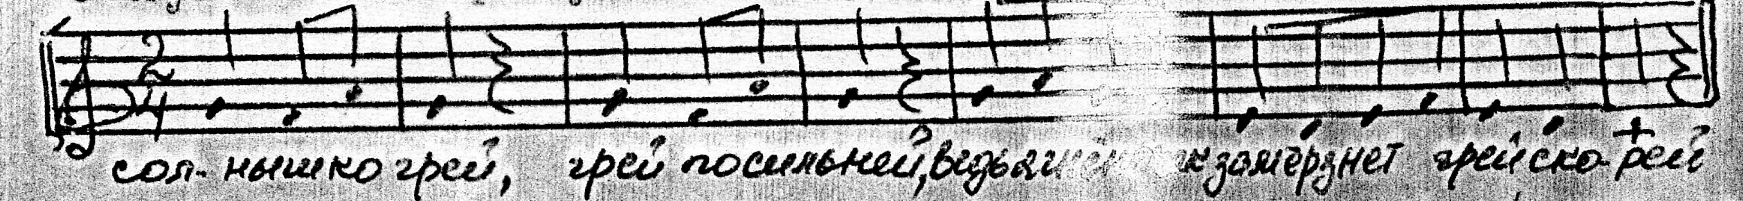 2
4
сол- нышко грей, грей посильней, ведь замёрзнет грей ско- рей